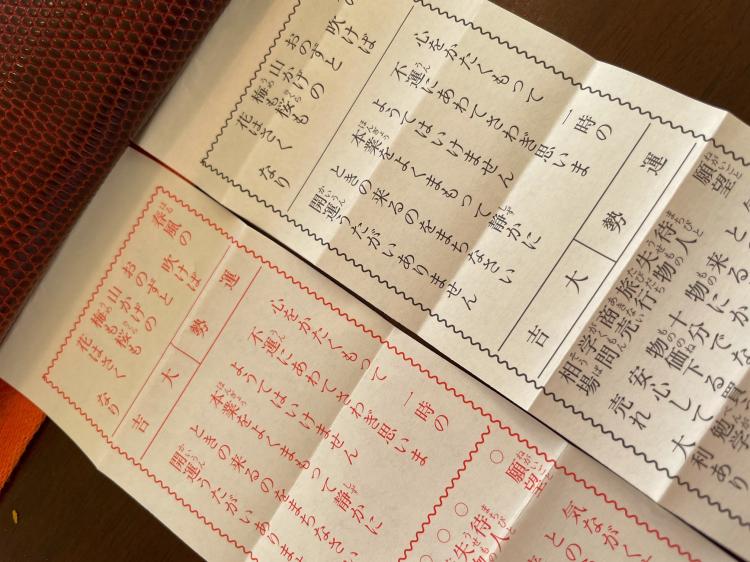 吹けば
おのずと
山かげの
梅も桜も
花はさく なり
運勢 大吉
心をかたくもって 一時の
不運にあわてさわぎ思いま
ようてはいけません
本業をよくまもって静かに
ときの来るのをまちなさい
開運うたがいありません
願望
待人
失物
旅行
商売
学問
相場
春風の
吹けば
おのずと
山かげの
梅も桜も
花はさく なり
運勢 大吉
心をかたくもって 一時の
不運にあわてさわぎ思いま
ようてはいけません
本業をよくまもって静かに
ときの来るのをまちなさい
開運うたがいありませ
○願望
○待人
○失物
気ながく